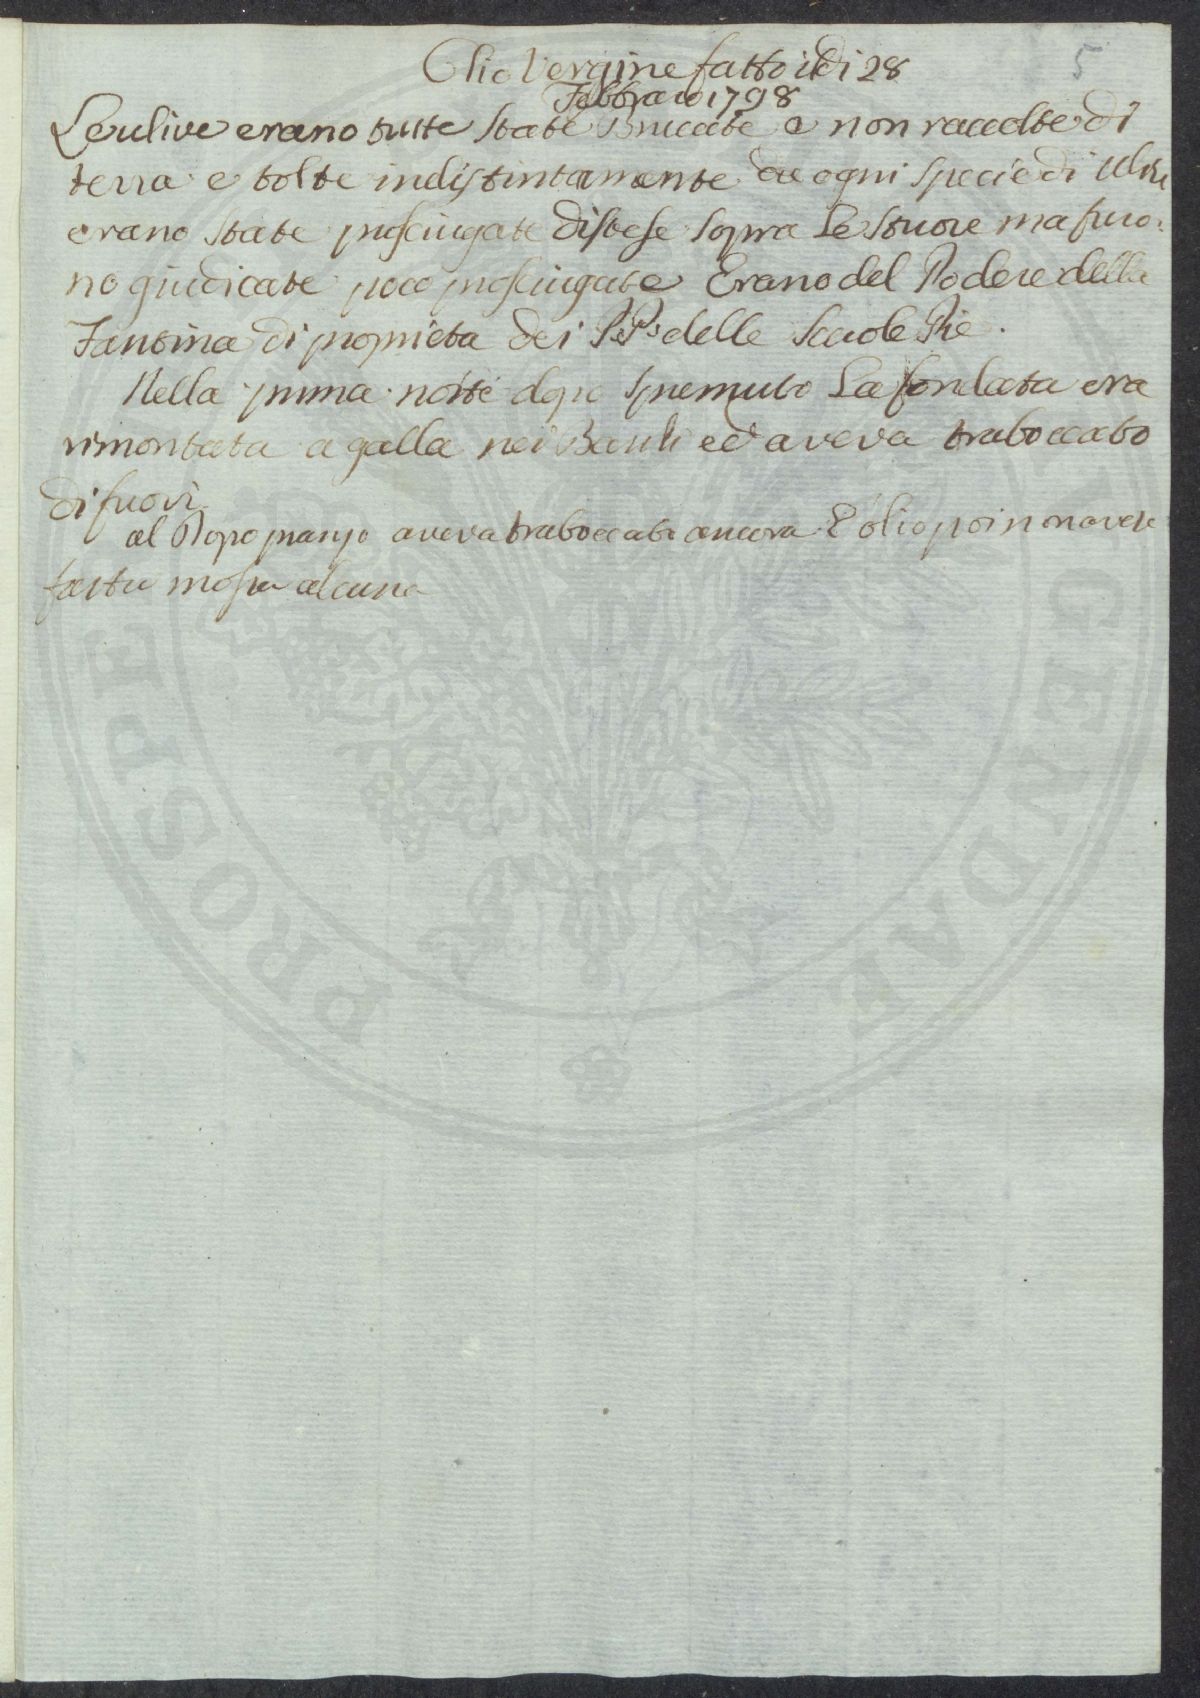 5
Olio Vergine fatto il di 28
Febbraio 1798
Le ulive erano tutte state Bruccate e non raccolte di
terra e tolte indistintamente da ogni specie di Ulivi
erano state prosciugate distese sopra Le Stuore ma furo:
no giudicate poco prosciugate Erano del Podere della
Fantina di proprieta dei PPi. delle Scuole Pie.
Nella prima notte dopo spremuto La fondata era
rimontata a galla nei ed aveva traboccato
di fuori
al Dopo pranzo aveva traboccato ancora L'olio poi non aveva
fatta mossa alcuna
PROSPERITATI AUGENDAE